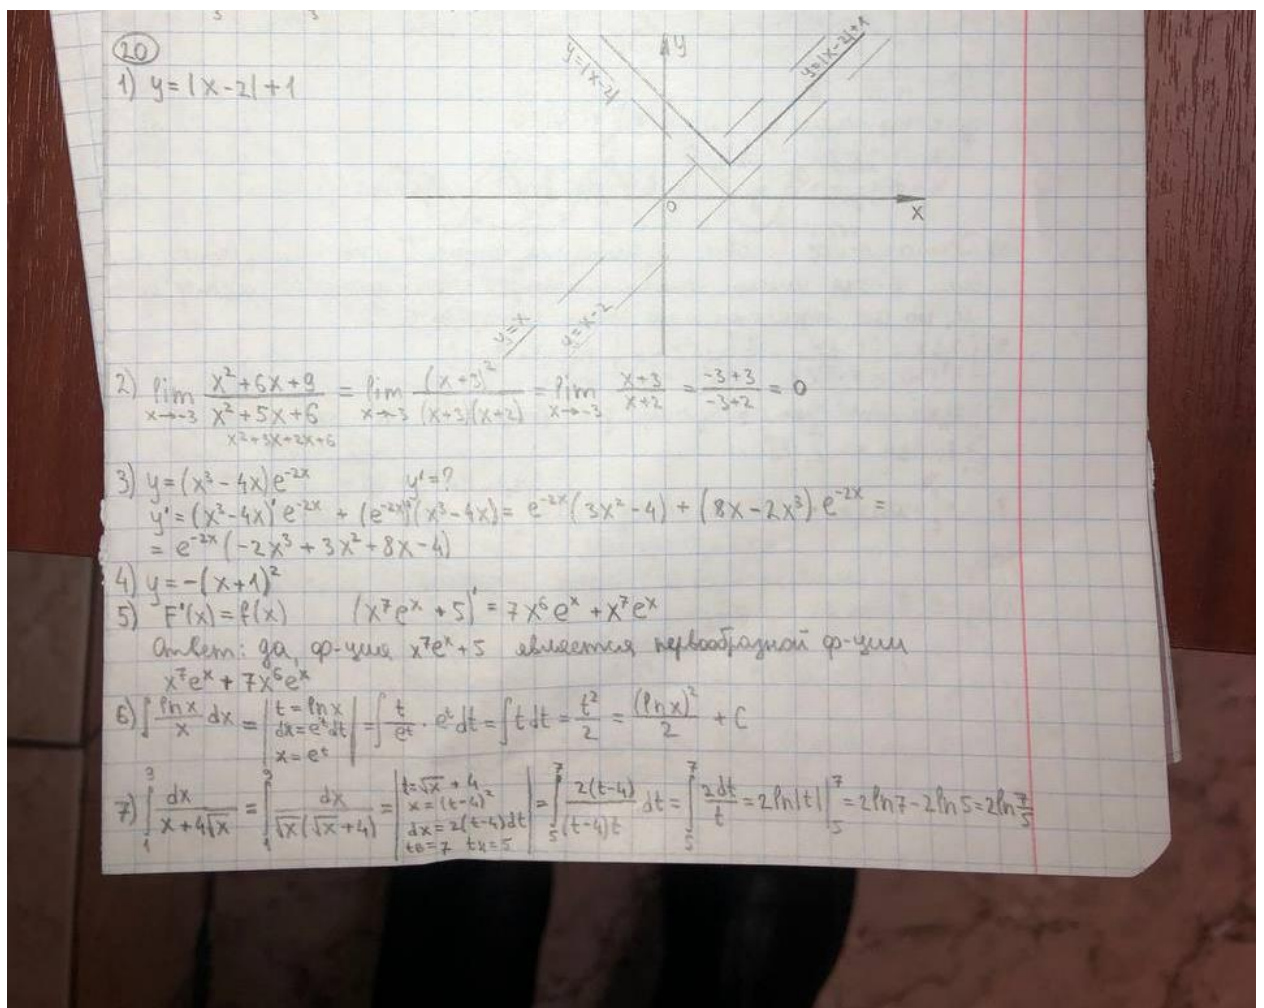 20
1) y = |x-2| + 1
y
y=|x-2|
y=|x-2|+1
0
x
y=x
y=x-2
2) lim x→-3 (x²+6x+9)/(x²+5x+6) = lim x→-3 (x+3)²/((x+3)(x+2)) = lim x→-3 (x+3)/(x+2) = (-3+3)/(-3+2) = 0
x²+3x+2x+6
3) y = (x³-4x)e⁻²ˣ y' = ?
y' = (x³-4x)' e⁻²ˣ + (e⁻²ˣ)'(x³-4x) = e⁻²ˣ(3x²-4) + (8x-2x³) e⁻²ˣ =
= e⁻²ˣ(-2x³+3x²+8x-4)
4) y = -(x+1)²
5) F'(x) = f(x) (x⁷eˣ+5)' = 7x⁶eˣ + x⁷eˣ
Ответ: да, ф-ция x⁷eˣ+5 является первообразной ф-ции
x⁷eˣ + 7x⁶eˣ
6) ∫ (ln x)/x dx = | t = ln x
dx = eᵗdt
x = eᵗ | = ∫ t/eᵗ · eᵗ dt = ∫ t dt = t²/2 = (ln x)²/2 + C
7) ∫₁⁹ dx/(x+4√x) = ∫₁⁹ dx/(√x(√x+4)) = | t = √x + 4
x = (t-4)²
dx = 2(t-4)dt
tв = 7 tн = 5 | = ∫₅⁷ 2(t-4)/((t-4)t) dt = ∫₅⁷ 2dt/t = 2ln|t| |₅⁷ = 2ln7 - 2ln5 = 2ln 7/5